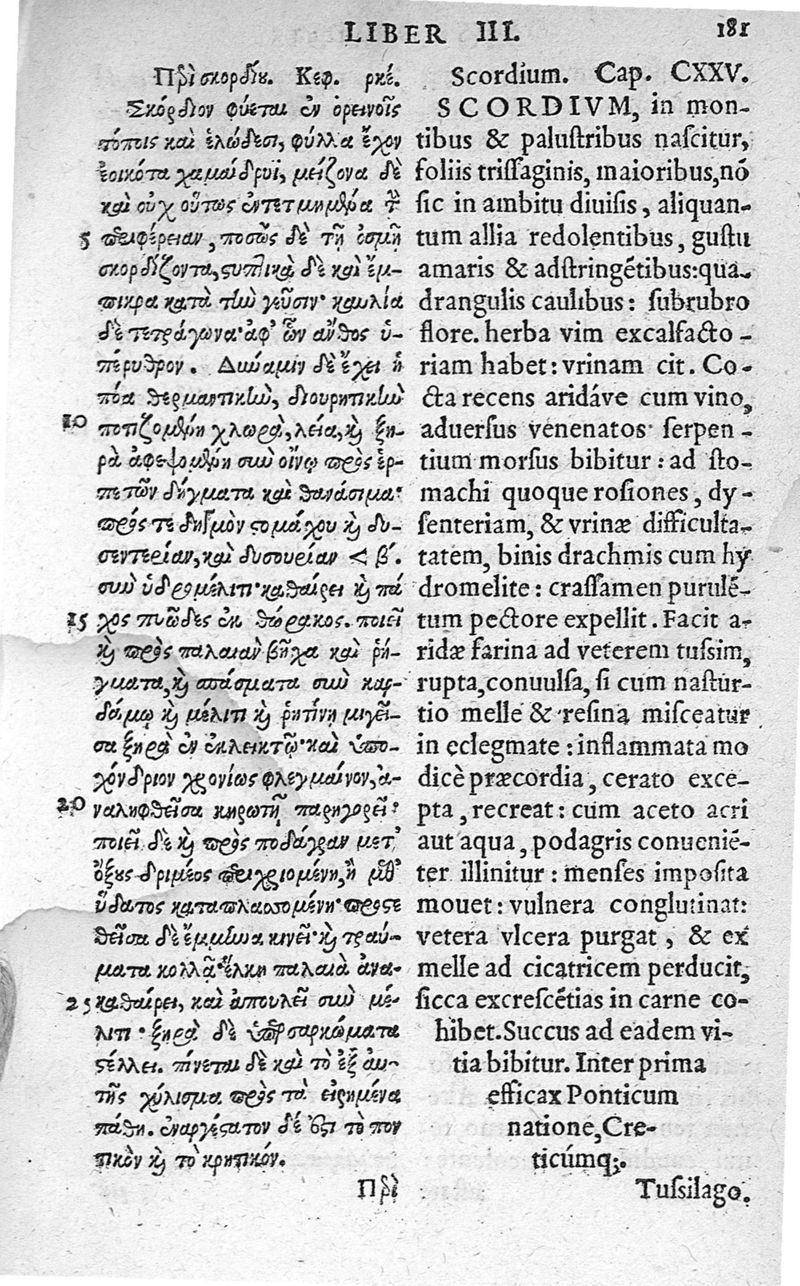 LIBER III. 181
Περὶ σκορδίου. Κεφ. ρκέ.
Σκόρδιον φύεται ἐν ὀρεινοῖς
τόποις καὶ ἑλώδεσι, φύλλα ἔχον
ἐοικότα χαμαίδρυϊ, μείζονα δὲ
καὶ οὐχ οὕτως ἐντετμημένα τὴν
5 περιφέρειαν, ποσῶς δὲ τῇ ὀσμῇ
σκορδίζοντα, στυπτικὰ δὲ καὶ ἔμ-
πικρα κατὰ τὴν γεῦσιν· καυλία
δὲ τετράγωνα· ἀφ' ὧν ἄνθος ὑ-
πέρυθρον. Δύναμιν δὲ ἔχει ἡ
πόα θερμαντικὴν, διουρητικὴν
10 ποτιζομένη χλωρὰ, λεία, καὶ ξη-
ρὰ ἀφεψομένη σὺν οἴνῳ πρὸς ἑρ-
πετῶν δήγματα καὶ θανάσιμα·
πρός τε δηγμὸν στομάχου καὶ δυ-
σεντερίαν, καὶ δυσουρίαν < β´.
σὺν ὑδρομέλιτι· καθαίρει καὶ πά
15 χος πυῶδες ἐκ θώρακος. ποιεῖ
καὶ πρὸς παλαιὰν βῆχα καὶ ῥή-
γματα, καὶ σπάσματα σὺν καρ-
δάμῳ καὶ μέλιτι καὶ ῥητίνῃ μιγεῖ-
σα ξηρὰ ἐν ἐκλεικτῷ· καὶ ὑπο-
χόνδριον χρονίως φλεγμαῖνον, ἀ-
20 ναληφθεῖσα κηρωτῇ παρηγορεῖ·
ποιεῖ δὲ καὶ πρὸς ποδάγραν μετ'
ὄξους δριμέος περιχριομένη, ἢ μεθ'
ὕδατος καταπλασσομένη· προστε
θεῖσα δὲ ἔμμηνα κινεῖ· καὶ τραύ-
ματα κολλᾷ· ἕλκη παλαιὰ ἀνα-
25 καθαίρει, καὶ ἀπουλεῖ σὺν μέ-
λιτι· ξηρὰ δὲ ὑπερσαρκώματα
στέλλει. πίνεται δὲ καὶ τὸ ἐξ αὐ-
τῆς χύλισμα πρὸς τὰ εἰρημένα
πάθη. ἐναργέστατον δέ ἐστι τὸ πον
τικὸν καὶ τὸ κρητικόν.
Περὶ
Scordium. Cap. CXXV.
SCORDIVM, in mon-
tibus & palustribus nascitur,
foliis trissaginis, maioribus, nō
sic in ambitu diuisis, aliquan-
tum allia redolentibus, gustu
amaris & adstringētibus: qua-
drangulis caulibus: subrubro
flore. herba vim excalfacto-
riam habet: vrinam cit. Co-
cta recens aridáve cum vino,
aduersus venenatos serpen-
tium morsus bibitur: ad sto-
machi quoque rosiones, dy-
senteriam, & vrinæ difficulta-
tatem, binis drachmis cum hy
dromelite: crassamen purulē-
tum pectore expellit. Facit a-
ridæ farina ad veterem tussim,
rupta, conuulsa, si cum nastur-
tio melle & resina misceatur
in eclegmate: inflammata mo
dicè præcordia, cerato exce-
pta, recreat: cum aceto acri
aut aqua, podagris conueniē-
ter illinitur: menses imposita
mouet: vulnera conglutinat:
vetera vlcera purgat, & ex
melle ad cicatricem perducit,
sicca excrescētias in carne co-
hibet. Succus ad eadem vi-
tia bibitur. Inter prima
efficax Ponticum
natione, Cre-
ticúmq;.
Tussilago.